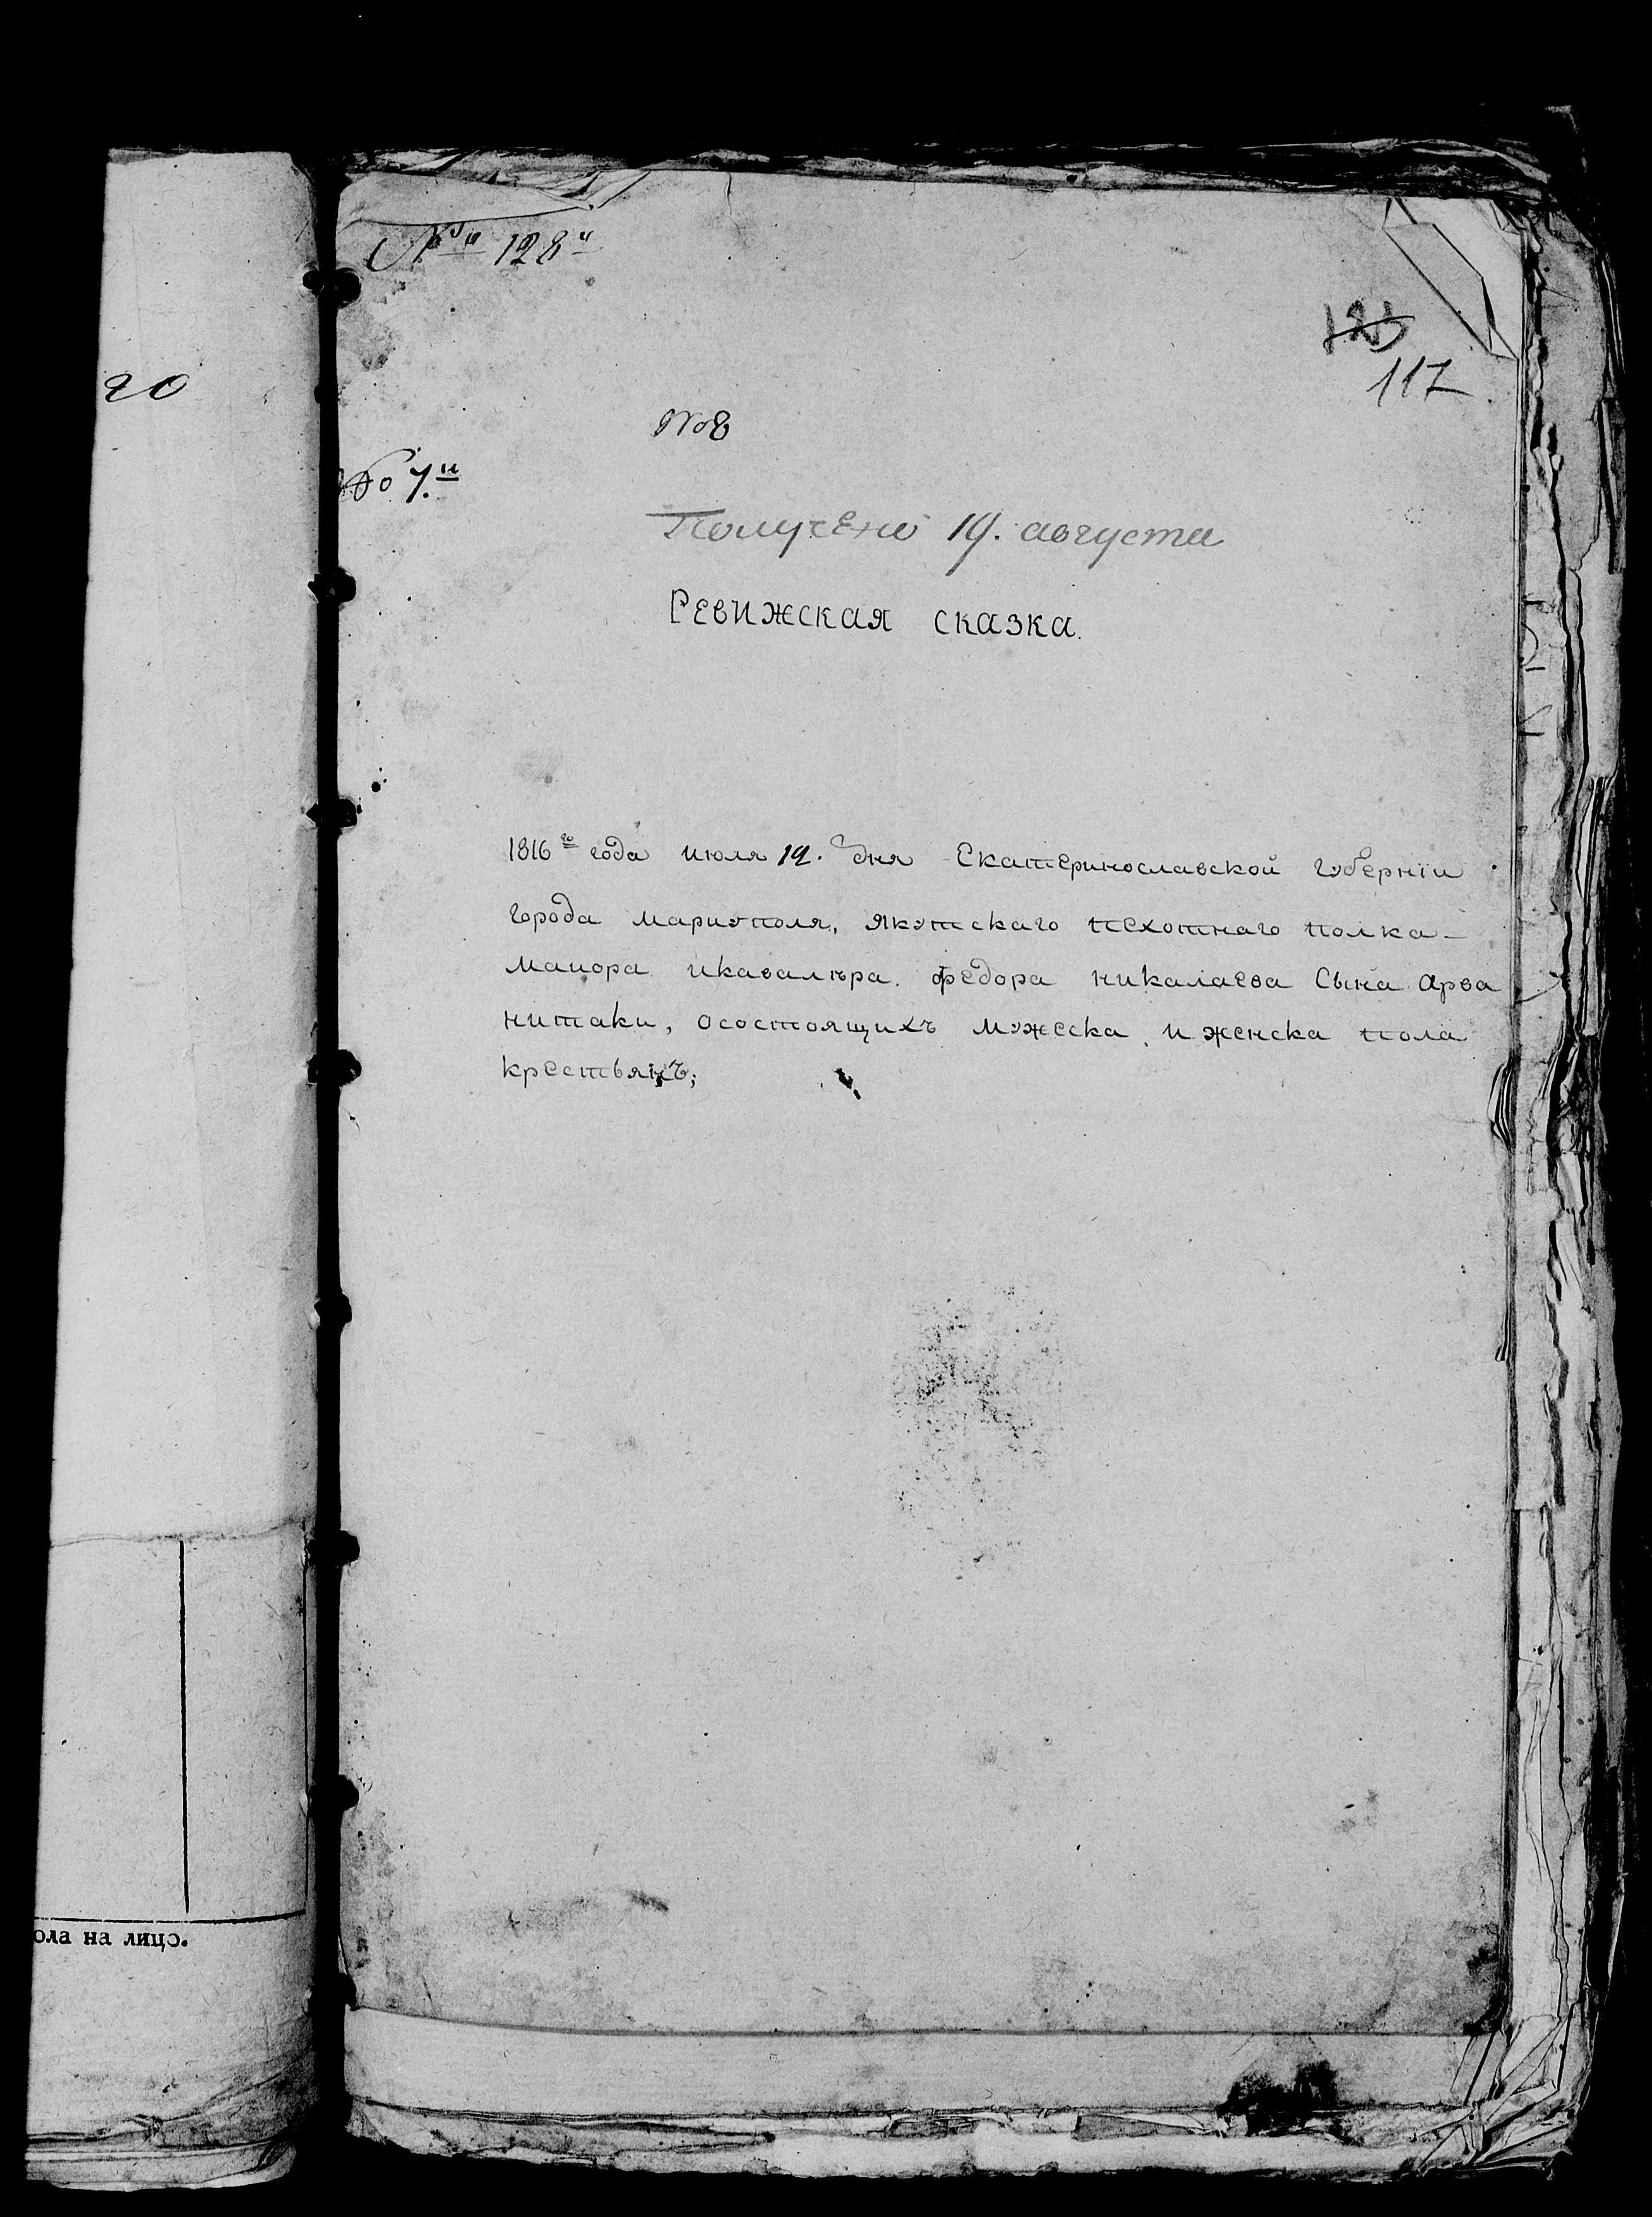 № 128й
123
117
20
№8
№ 7.й
Получено 19. августа
Ревижская сказка.
1816го года июля 19. дня Екатеринославской губернїи
города мариуполя, якутскаго пехотнаго полка
маиора икавалера. федора никалаева Сына Арва
нитаки, осостоящихъ мужеска и женска пола
крестьянъ;
ола на лицо.